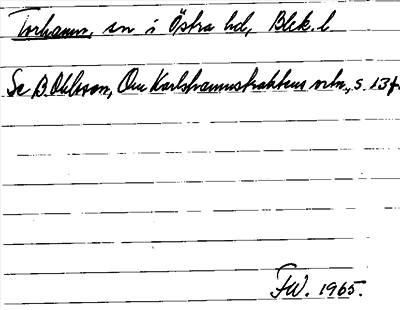 Torhamn, sn i Östra hd, Blek. l.
Se B. Ohlsson, Om Karlshamnstraktens ortn., s. 13 f.
FW. 1965.